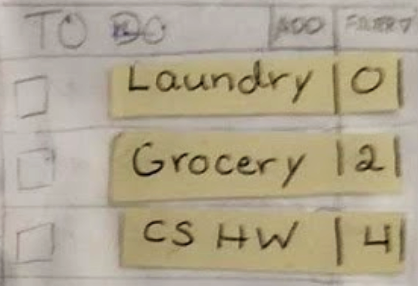 TO DO ADD FILTER
Laundry | 0 |
Grocery | 2 |
CS HW | 4 |